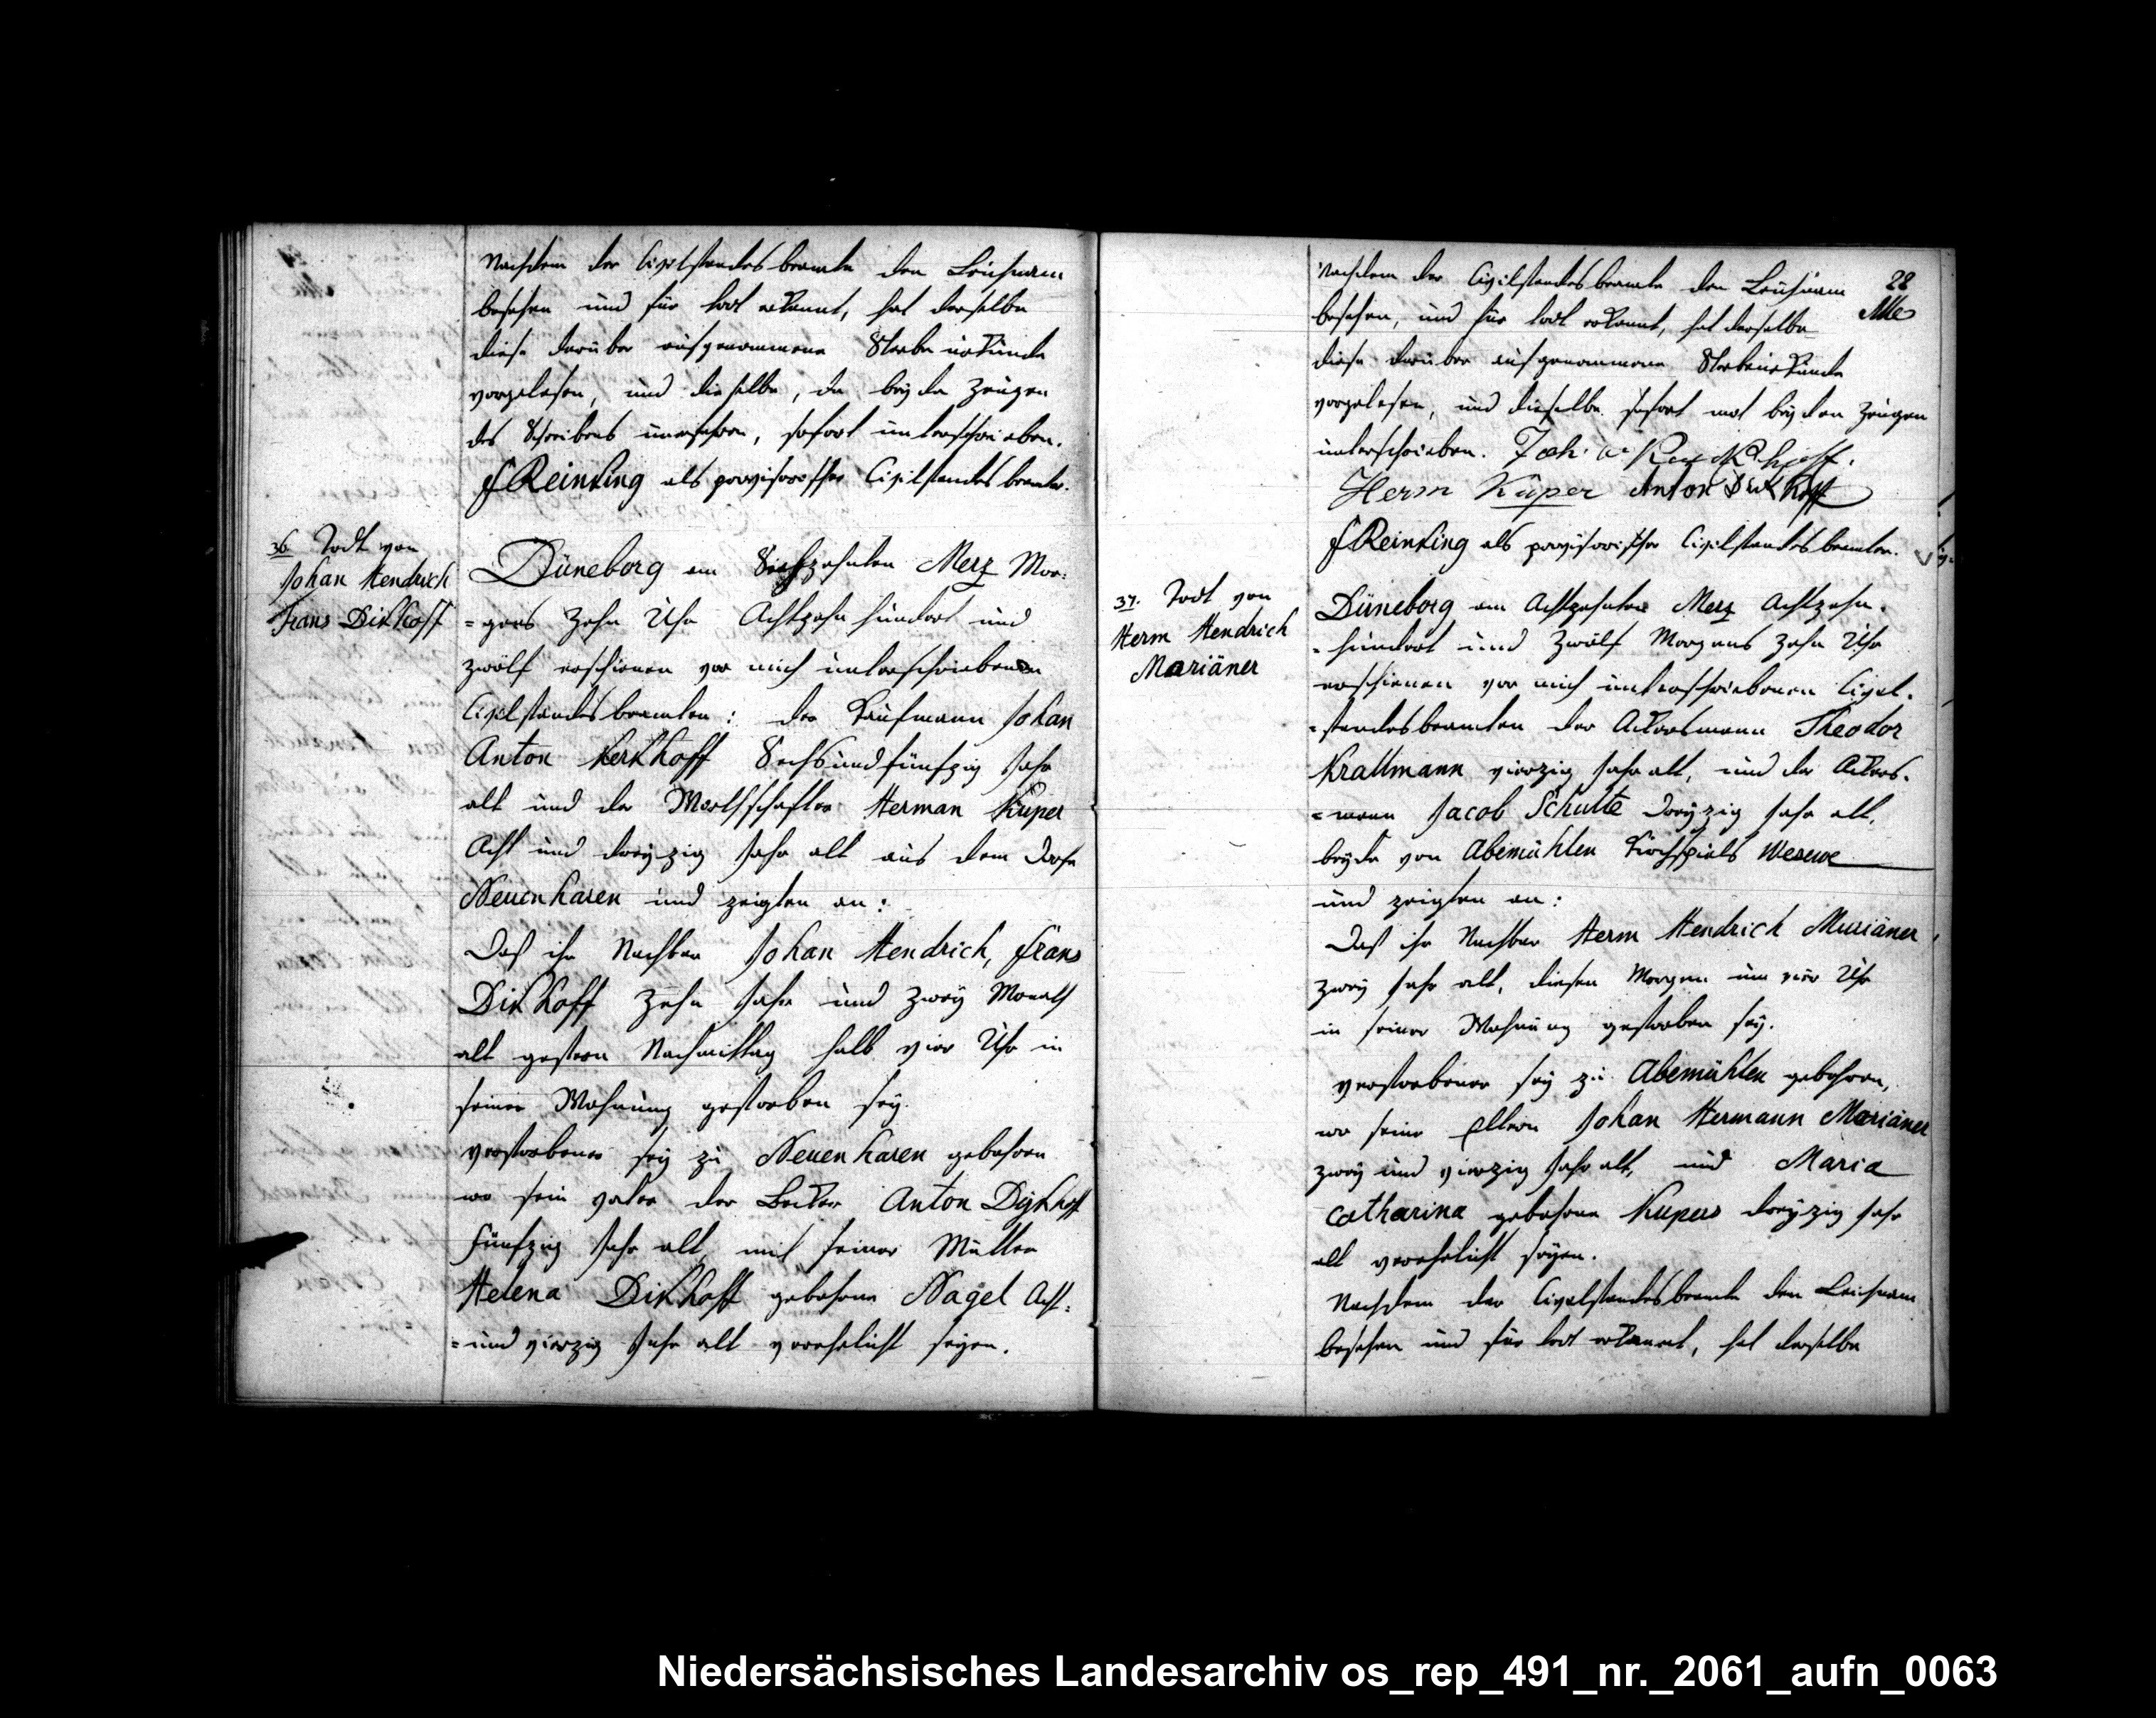 Nachdem der Civilstandesbeamte den Leichnam
besehen und für todt erkannt, hat derselbe
diese darüber aufgenommene Sterbeurkunde
vorgelesen, und dieselbe, da beyde Zeugen
des Schreibens unerfahren, sofort unterschrieben.
FReinking als provisorischer Civilstandesbeamter.
36 Todt von
Johan Hendrich
Frans Dikhoff
Düneborg am Siebzehnten Merz Mor=
=gens Zehn Uhr Achtzehnhundert und
zwölf erschienen vor mich unterschriebenen
Civilstandesbeamten: der Kaufmann Johan
Anton Kerkhoff Sechsundfünfzig Jahr
alt und der Wirthschafter Herman Küper
Acht und dreyzig Jahr alt aus dem Dorfe
Neuenharen und zeigten an:
Daß ihr Nachbar Johan Hendrich, Frans
Dikhoff Zehn Jahr und zwey Monath
alt gestern Nachmittag halb vier Uhr in
seiner Wohnung gestorben sey.
verstorbener sey zu Neuenharen gebohren
wo sein vater der Becker Anton Dykhoff
Fünfzig Jahr alt, mit seiner Mutter
Helena Dikhoff gebohrne Nagel Acht=
=und vierzig Jahr alt verehelicht seyen.
28
Nachdem der Civilstandesbeamte den Leichnam
besehen, und für todt erkannt, hat derselbe
diese darüber aufgenommene Sterbeurkunde
vorgelesen, und dieselbe sofort mit beyden Zeugen
unterschrieben. Joh: a
Herm Küper Anton Dickhoff
FReinking als provisorischer Civilstandesbeamter.
37. Todt von
Herm Hendrich
Mariäner
Düneborg am Achtzehnten Merz Achtzehn=
=hundert und Zwölf Morgens Zehn Uhr
erschienen vor mich unterschriebenen Civil=
=standesbeamten der Ackersmann Theodor
Krallmann vierzig Jahr alt, und der Ackers=
=mann Jacob Schulte dreyzig Jahr alt,
beyde von Abemühlen Kirchspiels Wesewe
und zeigten an:
Daß ihr Nachbar Herm Hendrich Mariäner,
zwey Jahr alt, diesen Morgen um vier Uhr
in seiner Wohnung gestorben sey.
verstorbener sey zu Abemühlen gebohren,
wo seine Eltern Johan Hermann Mariäner
zwey und vierzig Jahr alt, und Maria
Catharina gebohrne Kupers dreyzig Jahr
alt verehelicht seyen.
Nachdem der Civilstandesbeamte den Leichnam
besehen und für todt erkannt, hat derselbe
Niedersächsisches Landesarchiv os_rep_491_nr._2061_aufn_0063